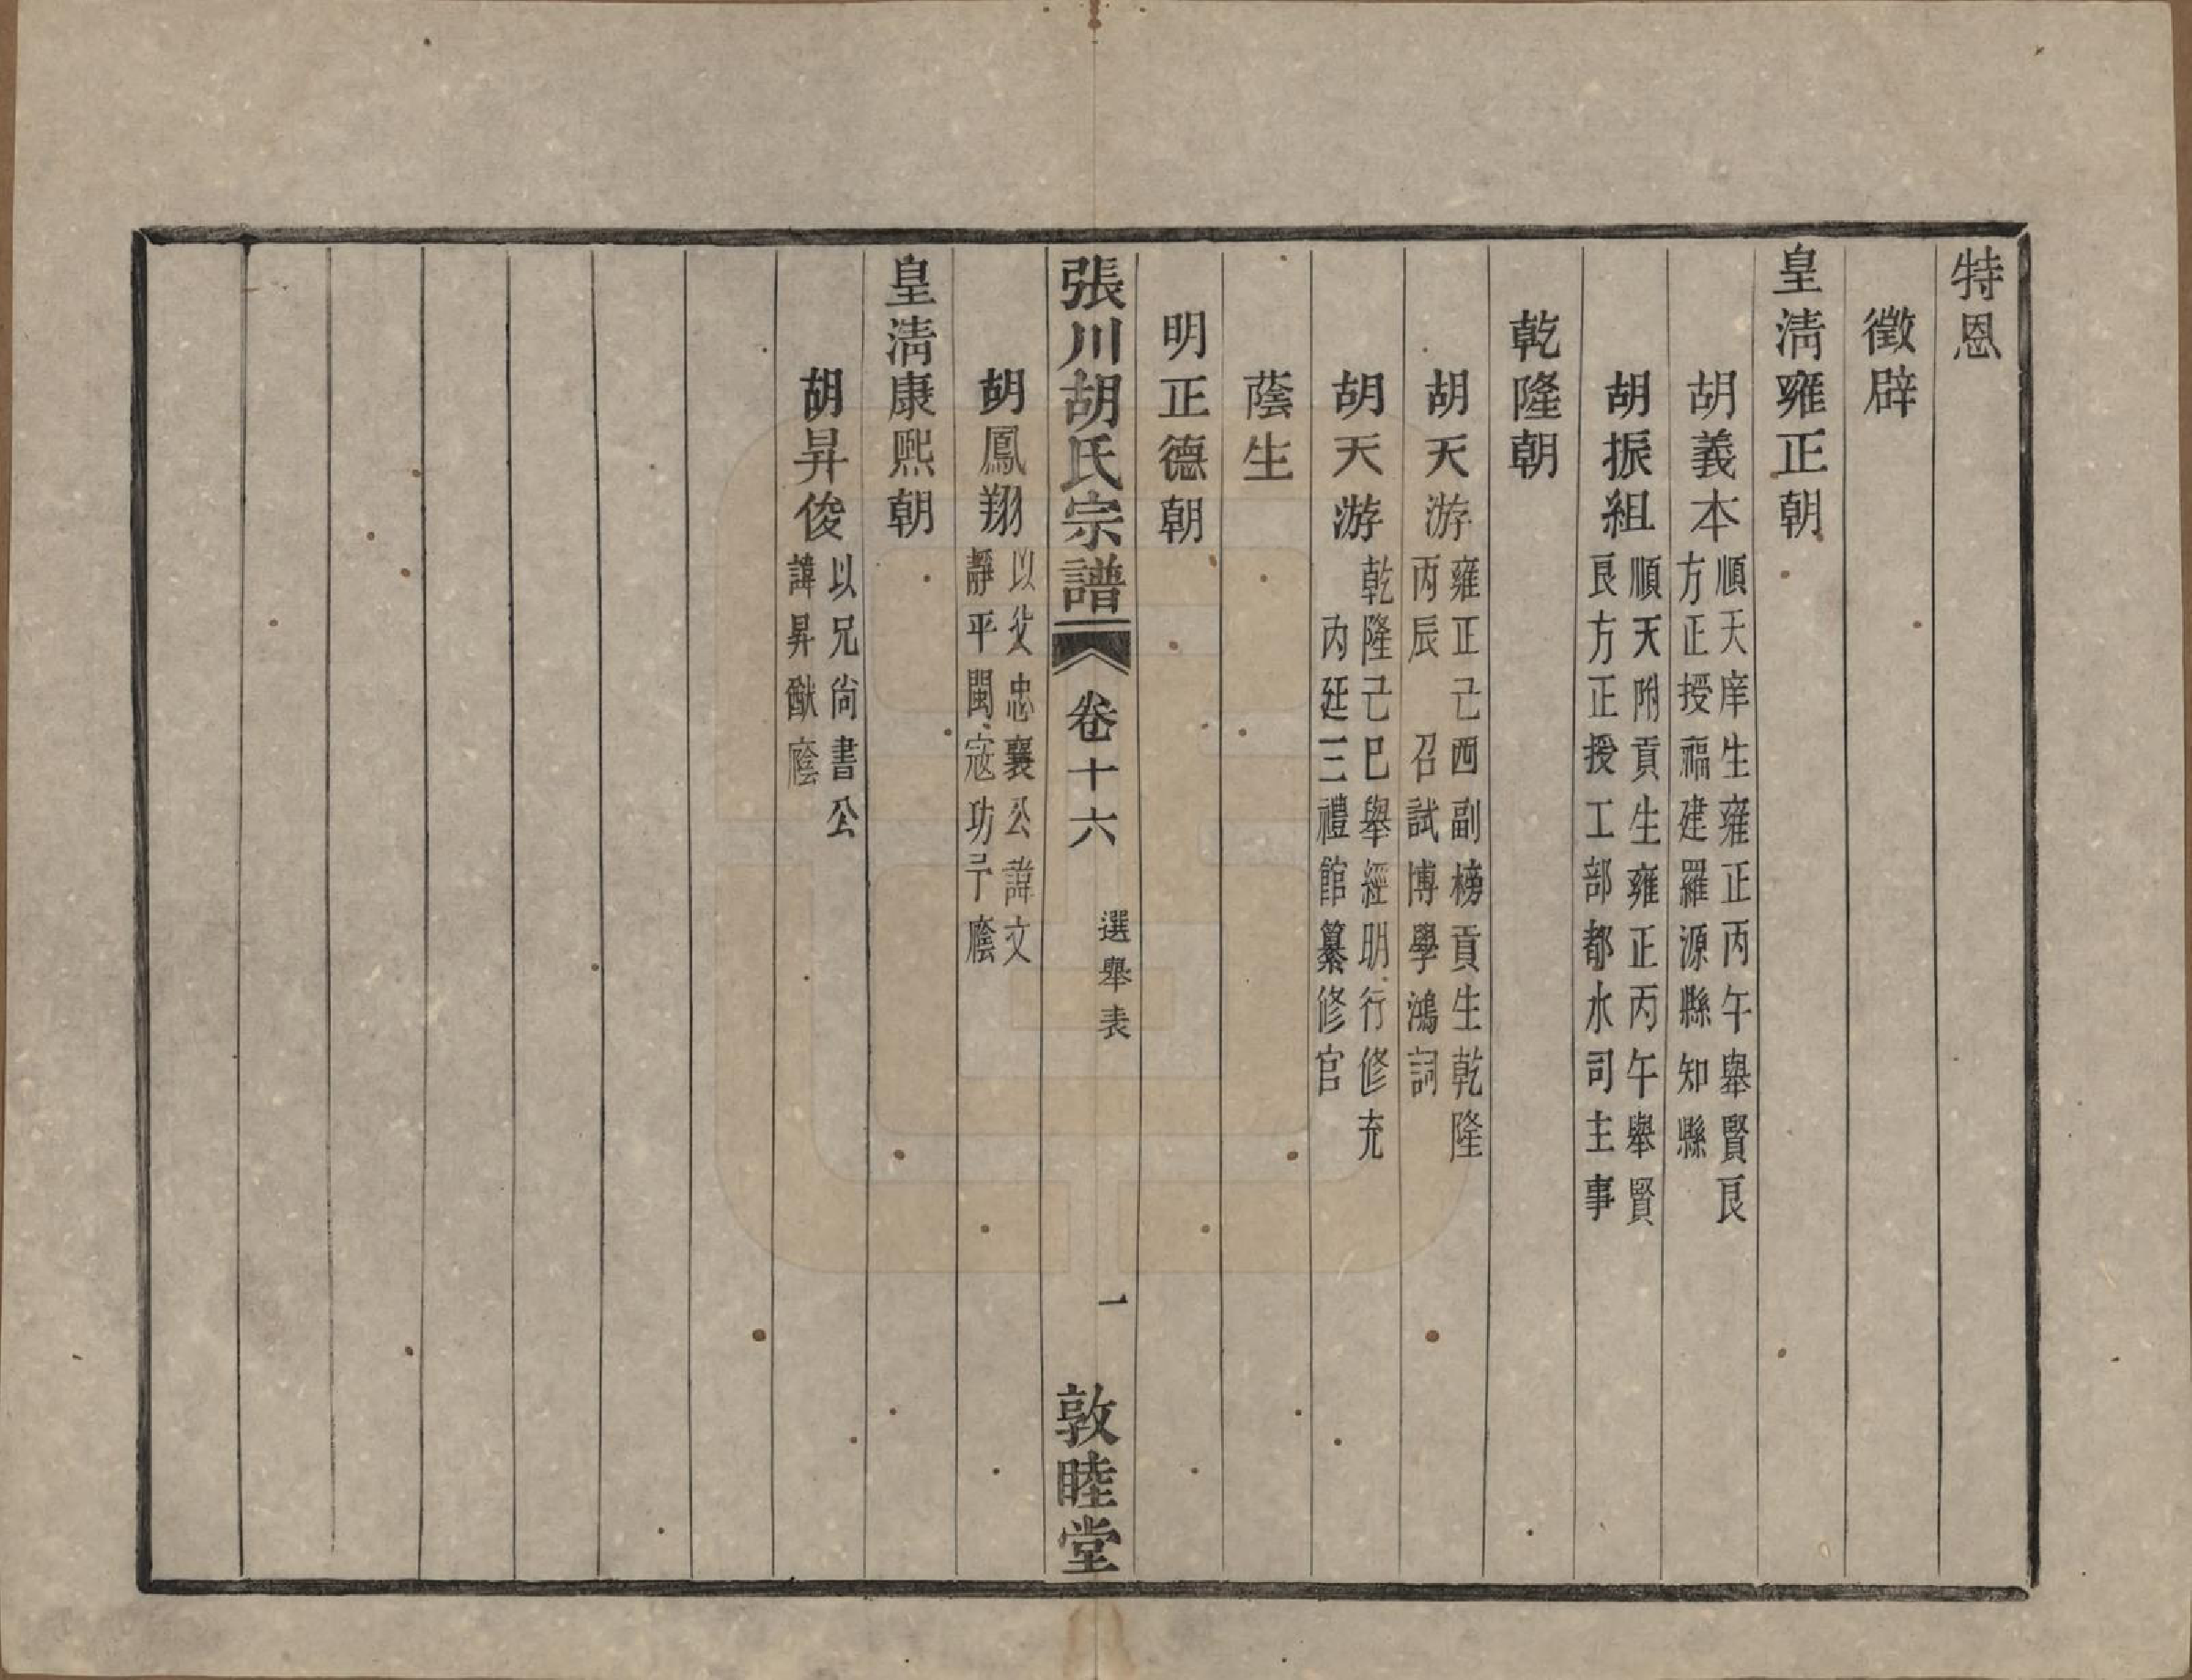 特恩
徵辟
皇淸雍正朝
胡義本
順天庠生雍正丙午舉賢良
方正授福建羅源縣知縣
胡振組
順天附貢生雍正丙午舉賢
良方正授工部都水司主事
乾隆朝
胡天游
雍正己酉副榜貢生乾隆
丙辰 召試博學鴻詞
胡天游
乾隆己巳舉經明行修充
內廷三禮館纂修官
蔭生
明正德朝
張川胡氏宗譜
卷十六
選舉表
一
敦睦堂
胡鳳翔
以父忠襄公諱文
靜平閩寇功予廕
皇淸康熙朝
胡昇俊
以兄尙書公
諱昇猷廕